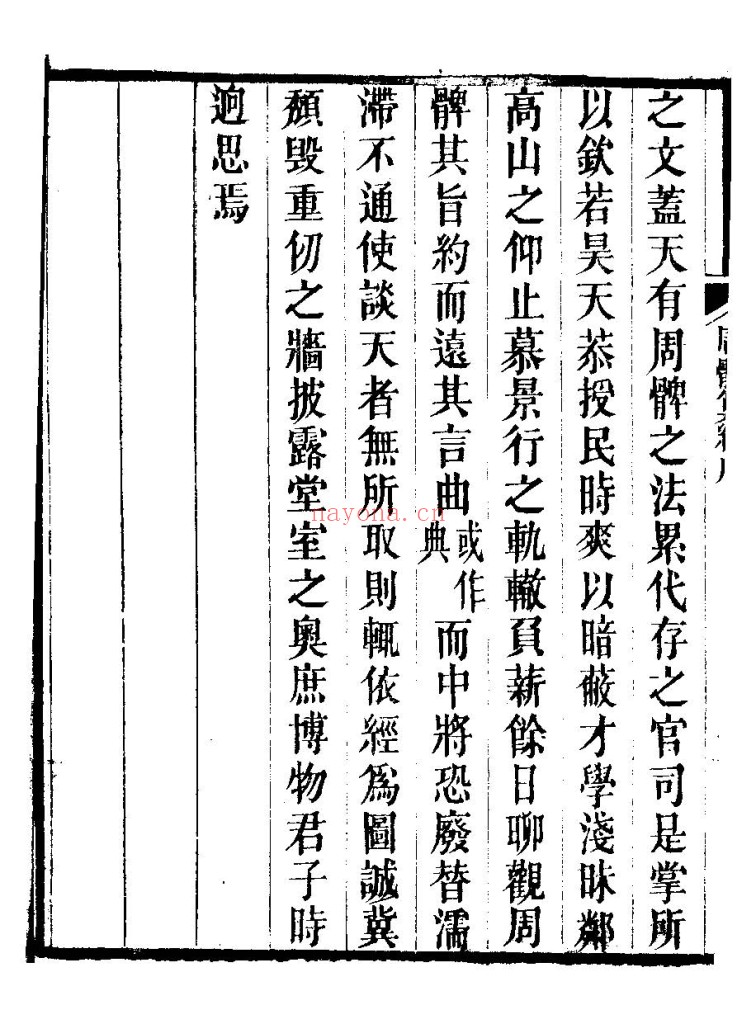 之文蓋天有周髀之法累代存之官司是掌所
以欽若昊天恭授民時爽以暗蔽才學淺昧鄰
高山之仰止慕景行之軌轍負薪餘日聊觀周
髀其旨約而遠其言曲或作典而中將恐廢替濡
滯不通使談天者無所取則輒依經爲圖誠冀
頽毀重仞之牆披露堂室之奧庶博物君子時
逈思焉
nayona.cn